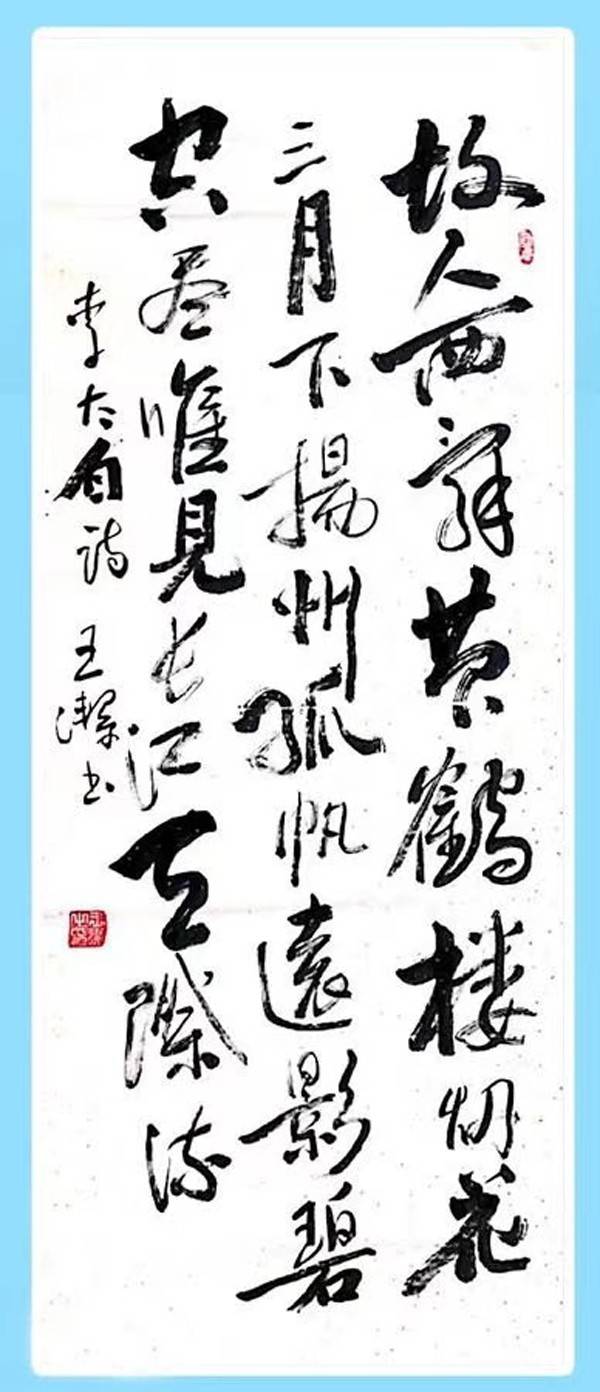 故人西辞黄鹤楼烟花
三月下揚州孤帆遠影碧
空尽唯見长江天際流
李太白诗 王潔书